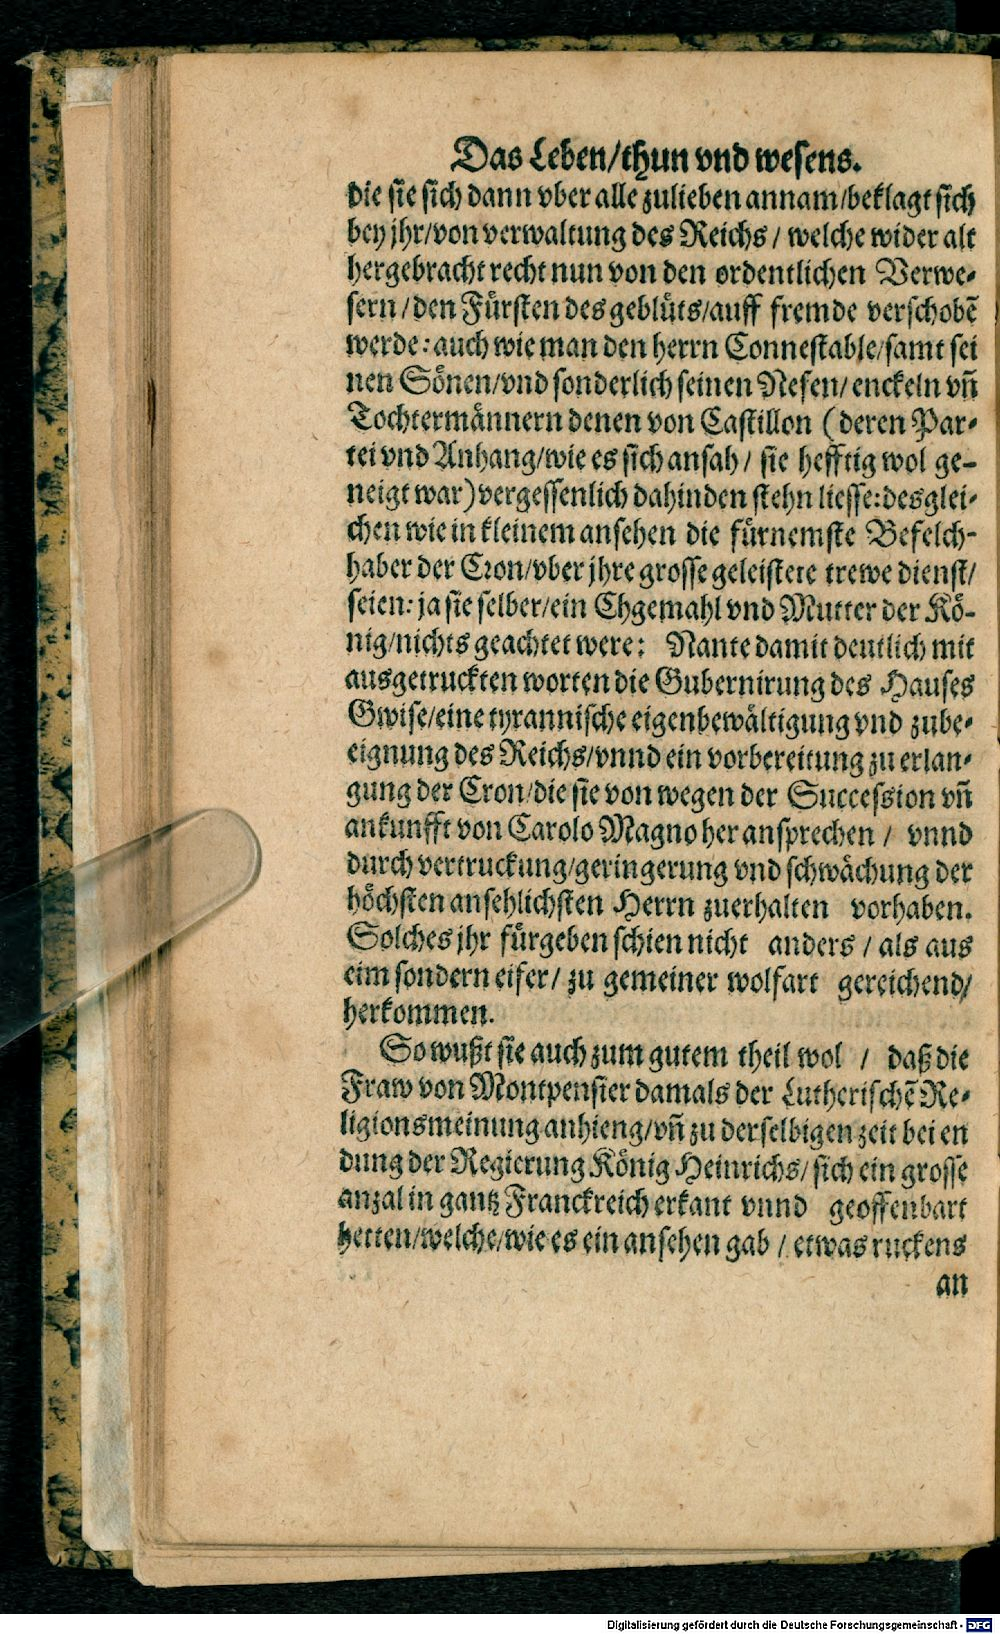 Das Leben/thun vnd wesens.
die sie sich dann vber alle zulieben annam/beklagt sich
bey jhr/von verwaltung des Reichs / welche wider alt
hergebracht recht nun von den ordentlichen Verwe-
sern / den Fürsten des geblüts/auff fremde verschobē
werde: auch wie man den herrn Connestable/samt sei
nen Sönen/vnd sonderlich seinen Nefen/ enckeln vñ
Tochtermännern denen von Castillon (deren Par-
tei vnd Anhang/wie es sich ansah / sie hefftig wol ge-
neigt war) vergessenlich dahinden stehn liesse: desglei-
chen wie in kleinem ansehen die fürnemste Befelch-
haber der Cron/vber jhre grosse geleistete trewe dienst/
seien: ja sie selber/ein Ehgemahl vnd Mutter der Kö-
nig/nichts geachtet were: Nante damit deutlich mit
ausgetruckten worten die Gubernirung des Hauses
Gwise/eine tyrannische eigenbewältigung vnd zube-
eignung des Reichs/vnnd ein vorbereitung zu erlan-
gung der Cron/die sie von wegen der Succession vñ
ankunfft von Carolo Magno her ansprechen / vnnd
durch vertruckung/geringerung vnd schwächung der
höchsten ansehlichsten Herrn zuerhalten vorhaben.
Solches jhr fürgeben schien nicht anders / als aus
eim sondern eifer / zu gemeiner wolfart gereichend/
herkommen.
So wußt sie auch zum gutem theil wol / daß die
Fraw von Montpensier damals der Lutherischē Re-
ligionsmeinung anhieng/vñ zu derselbigen zeit bei en
dung der Regierung König Heinrichs/ sich ein grosse
anzal in gantz Franckreich erkant vnnd geoffenbart
hetten/welche/wie es ein ansehen gab / etwas ruckens
an
Digitalisierung gefördert durch die Deutsche Forschungsgemeinschaft - DFG